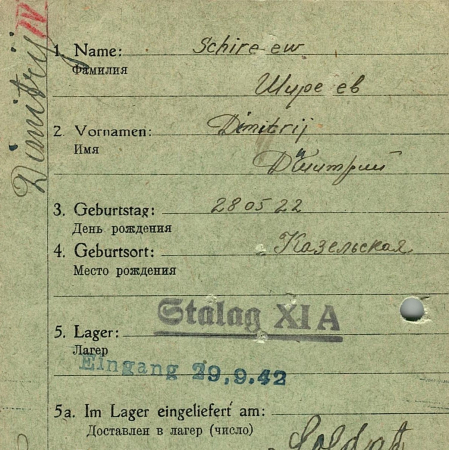 Dimitrij IV
1. Name: Schireew
Фамилия
Шуреев
2. Vornamen: Dimitrij
Имя
Дмитрий
3. Geburtstag: 28 05 22
День рождения
4. Geburtsort: Казельская
Место рождения
Stalag XI A
5. Lager:
Лагер
Eingang 29.9.42
5a. Im Lager eingeliefert am:
Доставлен в лагер (число)
Soldat